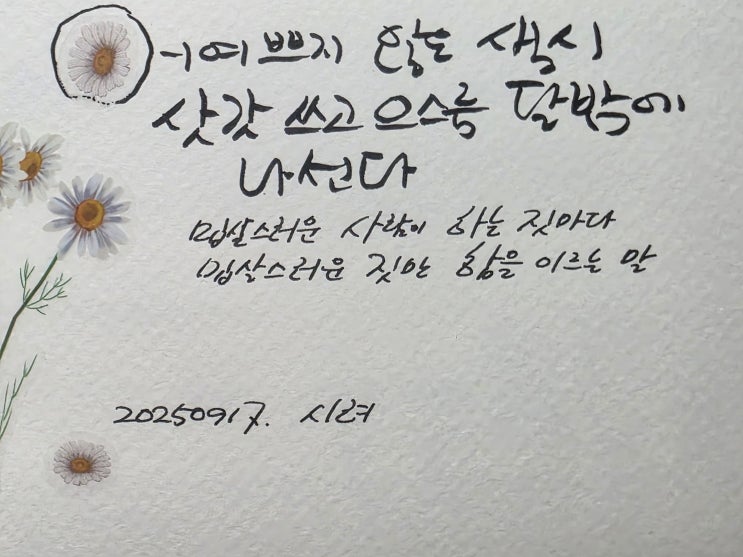 어예쁘지 않은 색시
삿갓 쓰고 으스름 달밤에
나선다
밉살스러운 사람이 하는 짓마다
밉살스러운 짓만 함을 이르는 말
20250917. 시려